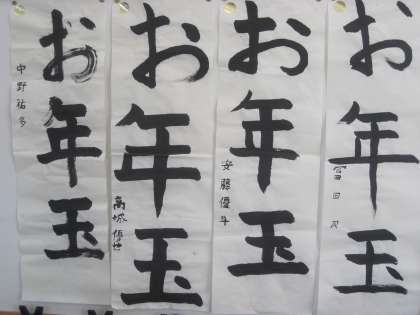 お年玉
中野祐多
お年玉
お年玉
安藤優斗
お年玉